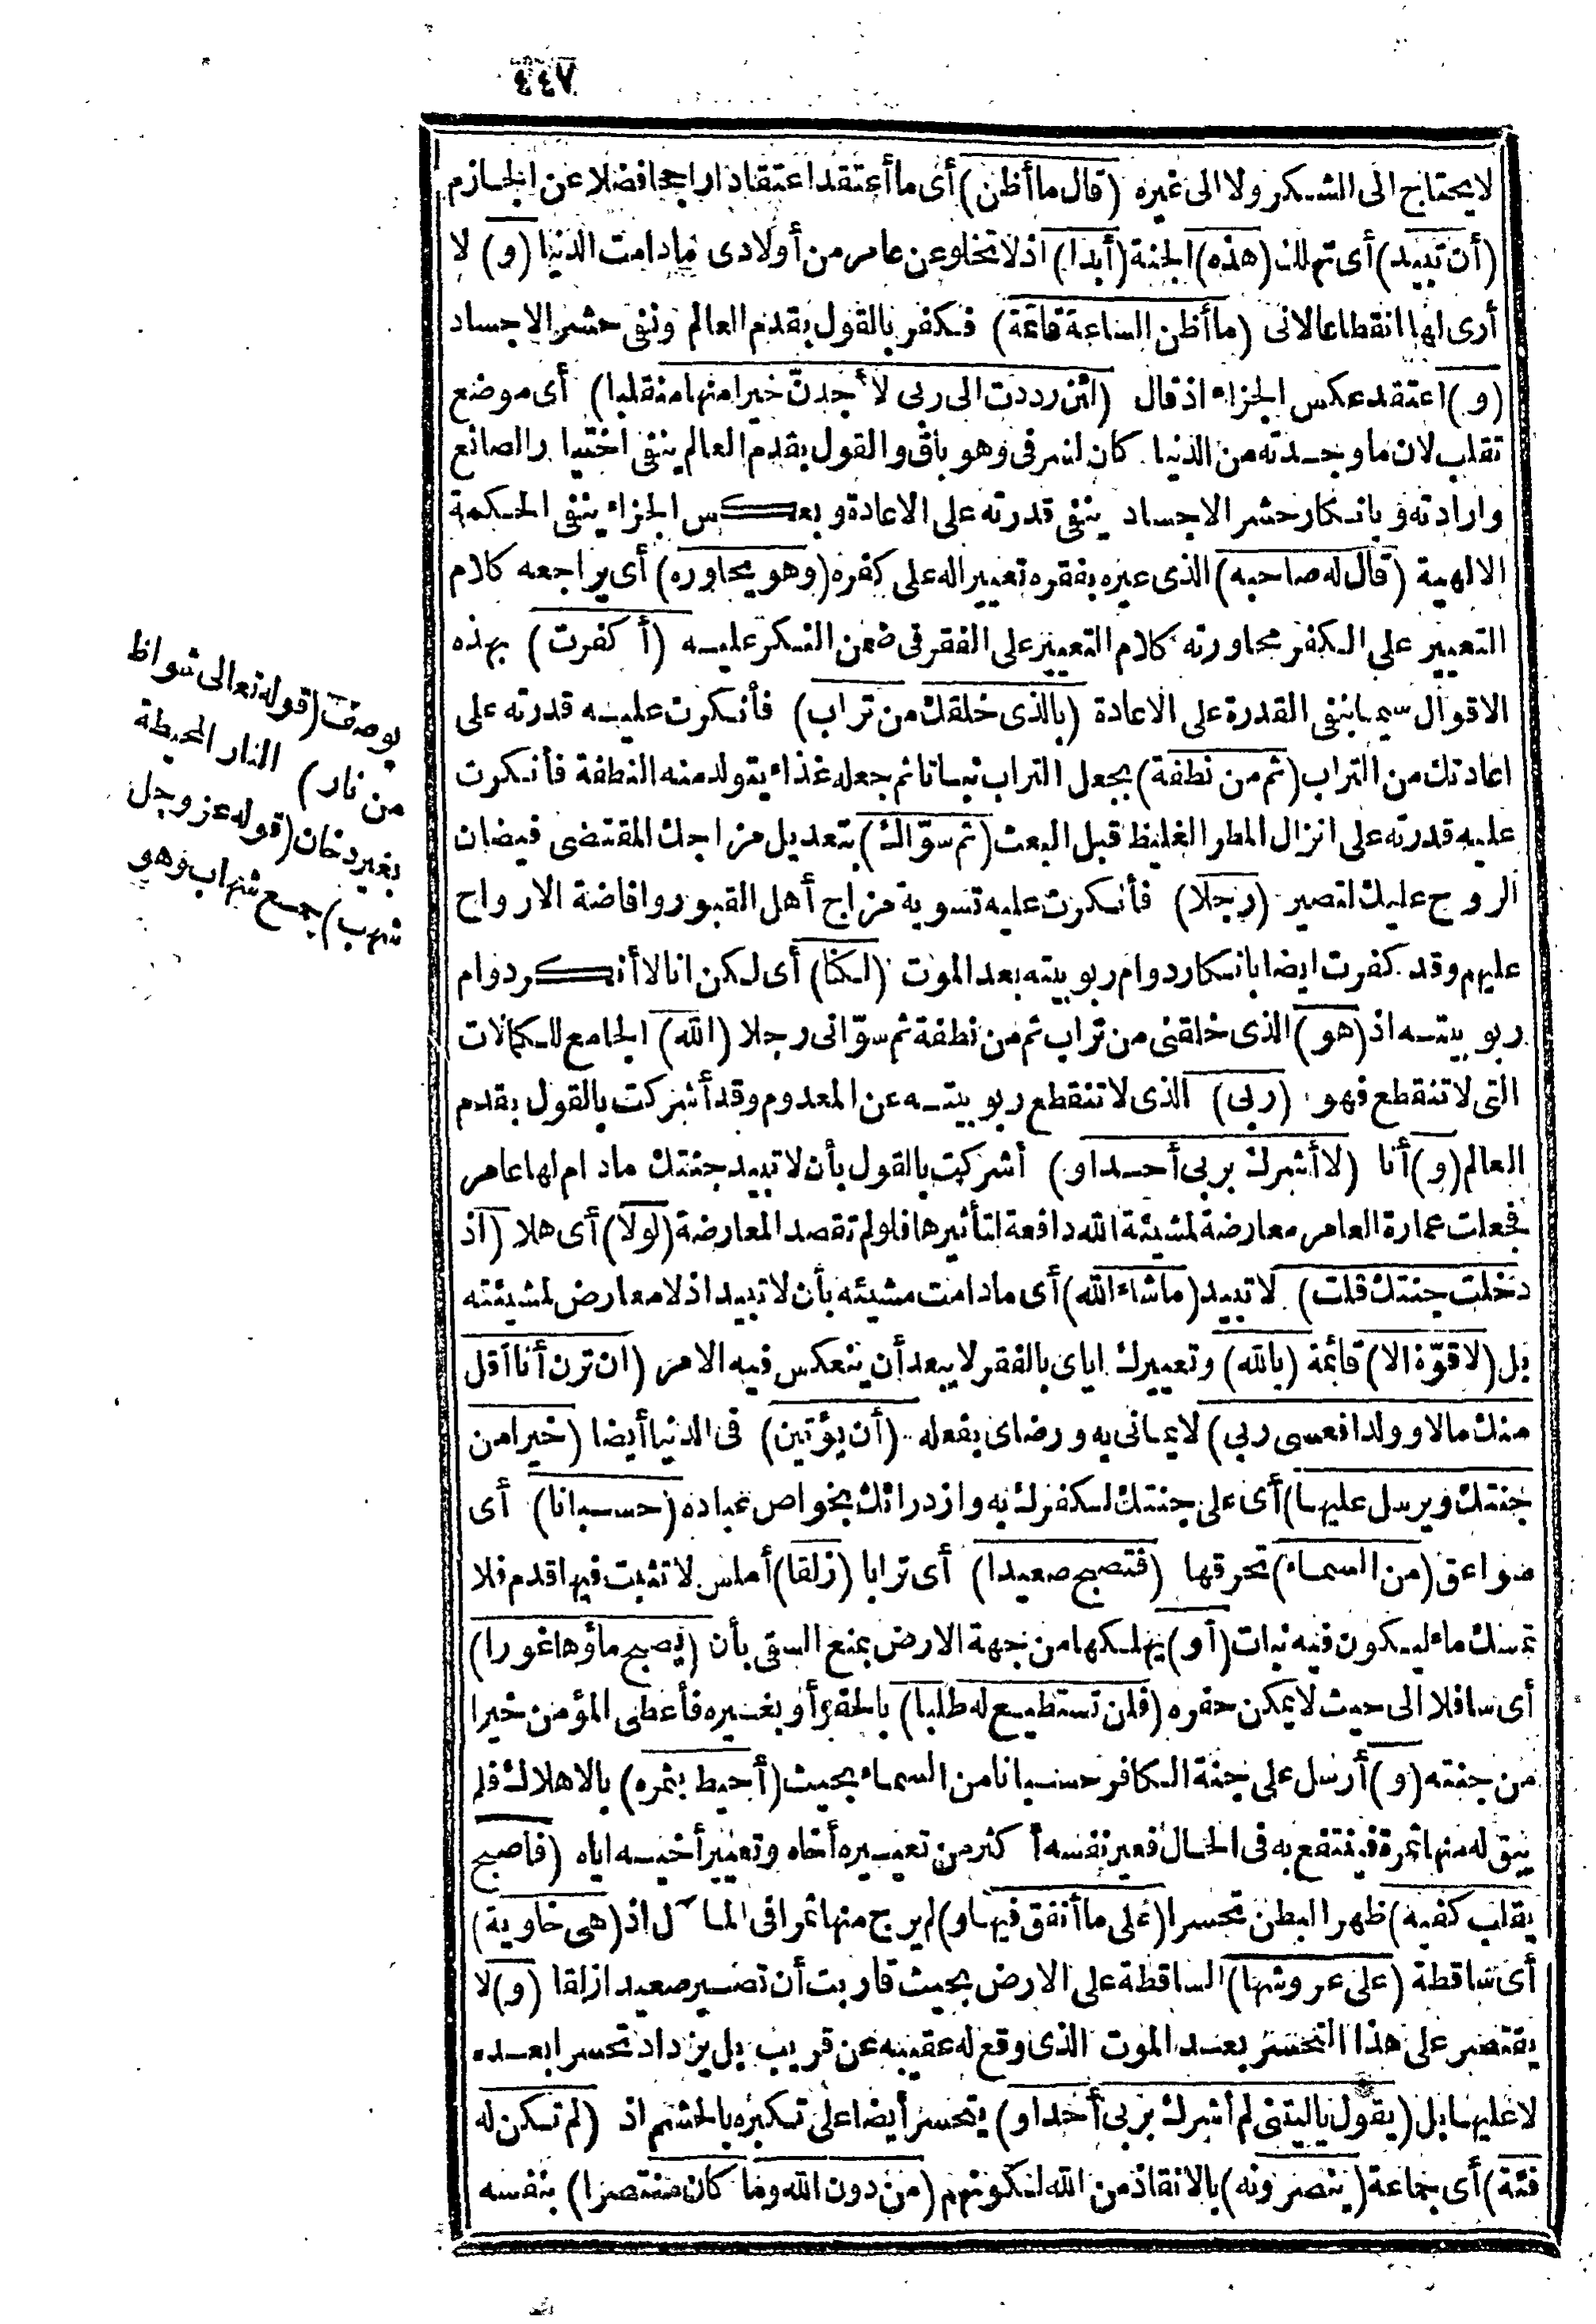 ٧٤٤
لا يحتاج الى الشكر ولا الى غيره (قال ما أظن) أى ما أعتقد اعتقادا راجحا فضلا عن الجازم
(أن تبيد) أى تهلك (هذه) الجنة (أبدا) اذ لا تخلو عن عامر من أولادى مادامت الدنيا (و) لا
أرى لها انقطاعا لانى (ما أظن الساعة قائمة) فكفر بالقول بقدم العالم ونفى حشر الاجساد
(و) اعتقد عكس الجزاء اذ قال (لئن رددت الى ربى لأجدنّ خيرا منها منقلبا) أى موضع
تقلب لان ما وجدته من الدنيا كان لشرفى وهو باق والقول بقدم العالم ينفى اختيار الصانع
وارادته وبانكار حشر الاجساد ينفى قدرته على الاعادة وبعكس الجزاء ينفى الحكمة
الالهية (قال له صاحبه) الذى عيره بفقره تعييرا له على كفره (وهو يحاوره) أى يراجعه كلام
التعيير على الكفر محاورته كلام التعيير على الفقر فى ضمن النكر عليه (أ كفرت) بهذه
الاقوال سيما بنفى القدرة على الاعادة (بالذى خلقك من تراب) فأنكرت عليه قدرته على
اعادتك من التراب (ثم من نطفة) بجعل التراب نباتا ثم جعله غذاء يتولد منه النطفة فأنكرت
عليه قدرته على انزال المطر الغليظ قبل البعث (ثم سوّاك) بتعديل مزاجك المقتضى فيضان
الروح عليك لتصير (رجلا) فأنكرت عليه تسوية مزاج أهل القبور وافاضة الارواح
عليهم وقد كفرت ايضا بانكار دوام ربوبيته بعد الموت (لكنا) أى لكن انا لا أنكر دوام
ربوبيته اذ (هو) الذى خلقنى من تراب ثم من نطفة ثم سوّانى رجلا (الله) الجامع للكمالات
التى لا تنقطع فهو (ربى) الذى لا تنقطع ربوبيته عن المعدوم وقد أشركت بالقول بقدم
العالم (و) أنا (لا أشرك بربى أحدا و) أشركت بالقول بأن لا تبيد جنتك مادام لها عامر
فجعلت عمارة العامر معارضة لمشيئة الله دافعة لتأثيرها فلولم تقصد المعارضة (لولا) أى هلا (اذ
دخلت جنتك قلت) لا تبيد (ما شاء الله) أى مادامت مشيئه بأن لا تبيد اذ لا معارض لمشيئته
بل (لا قوّة الا) قائمة (بالله) وتعييرك اياى بالفقر لا يبعد أن ينعكس فيه الامر (ان ترن أنا أقل
منك مالا وولدا فعسى ربى) لايمانى به ورضاى بفعله (أن يؤتين) فى الدنيا أيضا (خيرا من
جنتك ويرسل عليها) أى على جنتك لكفرك به وازدرائك بخواص عباده (حسبانا) أى
صواعق (من السماء) تحرقها (فتصبح صعيدا) أى ترابا (زلقا) أملس لا تثبت فيها قدم فلا
تمسك ماء ليكون فيه نبات (أو) يهلكها من جهة الارض بمنع السقى بأن (يصبح ماؤها غورا)
أى سافلا الى حيث لا يمكن حفره (فلن تستطيع له طلبا) بالحفر أو بغيره فأعطى المؤمن خيرا
من جنته (و) أرسل على جنة الكافر حسبانا من السماء بحيث (أحيط بثمره) بالاهلاك فلم
يبق له منها ثمرة فينتفع به فى الحال فعير نفسه أكثر من تعييره أخاه وتعيير أخيه اياه (فأصبح
يقلب كفيه) ظهر البطن تحسرا (على ما أنفق فيها و) لم يرج منها ثمرا فى المآل اذ (هى خاوية)
أى ساقطة (على عروشها) الساقطة على الارض بحيث قاربت أن تصير صعيدا زلقا (و) لا
يقتصر على هذا التحسر بعد الموت الذى وقع له عقيبه عن قريب بل يزداد تحسرا بعده
لا عليها بل (يقول يا ليتنى لم أشرك بربى أحدا و) يتحسر أيضا على تكبره بالحشم اذ (لم تكن له
فئة) أى جماعة (ينصرونه) بالانقاذ من الله لكونهم (من دون الله وما كان منتصرا) بنفسه
يوصف (قوله تعالى شواظ
من نار) النار المحيطة
بغير دخان (قوله عز وجل
شهب) جمع شهاب وهو